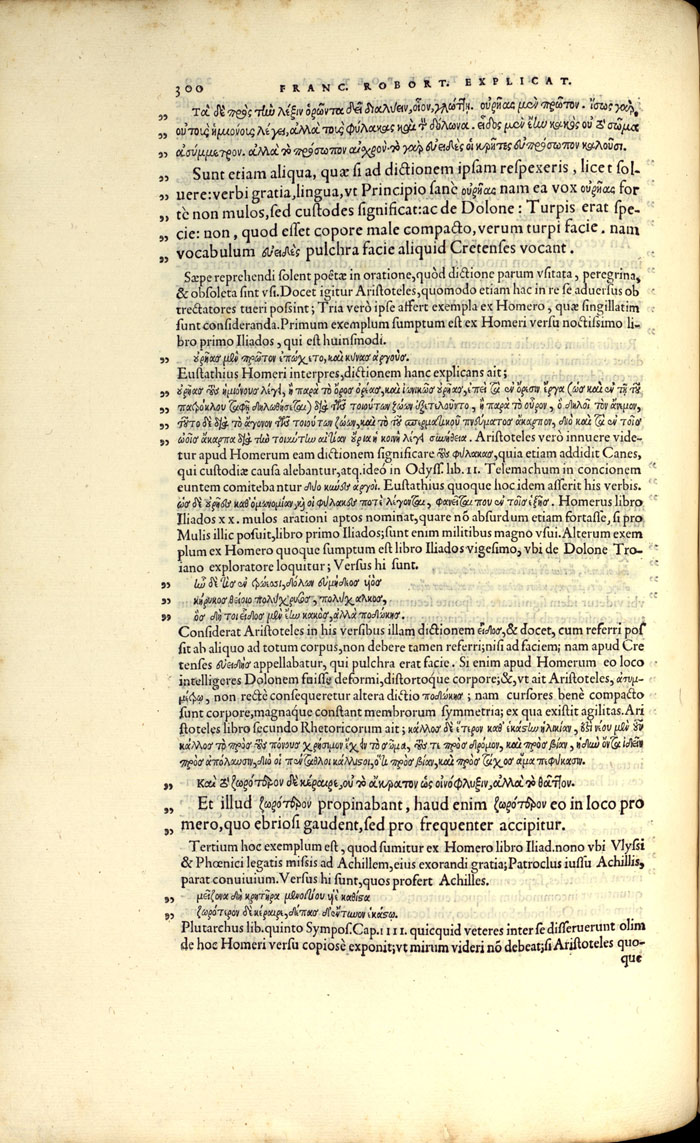 300 FRANC. ROBORT. EXPLICAT.
Τὰ δὲ πρὸς τὴν λέξιν ὁρῶντα δεῖ διαλύειν, οἷον, γλώττῃ. οὐρῆας μὲν πρῶτον. ἴσως γὰρ
οὐ τοὺς ἡμιόνους λέγει, ἀλλὰ τοὺς φύλακας καὶ τὸν δόλωνα. εἶδος μὲν ἔην κακὸς οὐ τὸ σῶμα
ἀσύμμετρον. ἀλλὰ τὸ πρόσωπον αἰσχρόν· τὸ γὰρ εὐειδὲς οἱ κρῆτες εὐπρόσωπον καλοῦσι.
Sunt etiam aliqua, quæ si ad dictionem ipsam respexeris, licet sol-
uere: verbi gratia, lingua, vt Principio sanè οὐρῆας nam ea vox οὐρῆας for
tè non mulos, sed custodes significat: ac de Dolone: Turpis erat spe-
cie: non, quod esset copore male compacto, verum turpi facie. nam
vocabulum εὐειδὲς pulchra facie aliquid Cretenses vocant.
Sæpe reprehendi solent poëtæ in oratione, quòd dictione parum vsitata, peregrina,
& obsoleta sint vsi. Docet igitur Aristoteles, quomodo etiam hac in re se aduersus ob
trectatores tueri possint; Tria verò ipse affert exempla ex Homero, quæ singillatim
sunt consideranda. Primum exemplum sumptum est ex Homeri versu noctissimo li-
bro primo Iliados, qui est huiusmodi.
οὐρῆας μὲν πρῶτον ἐπῴχετο, καὶ κύνας ἀργούς.
Eustathius Homeri interpres, dictionem hanc explicans ait;
οὐρῆας τοὺς ἡμιόνους λέγει, ἢ παρὰ τὸ ὄρος
διὰ τὸ ἄγονον
Aristoteles verò innuere vide-
tur apud Homerum eam dictionem significare τοὺς φύλακας, quia etiam addidit Canes,
qui custodiæ causa alebantur, atq. ideò in Odyss. lib. 11. Telemachum in concionem
euntem comitebantur δύο κύνες ἀργοί. Eustathius quoque hoc idem asserit his verbis.
Homerus libro
Iliados x x. mulos arationi aptos nominat, quare nõ absurdum etiam fortasse, si pro
Mulis illic posuit, libro primo Iliados; sunt enim militibus magno vsui. Alterum exem
plum ex Homero quoque sumptum est libro Iliados vigesimo, vbi de Dolone Tro-
iano exploratore loquitur; Versus hi sunt.
ἦν δέ τις ἐν τρώεσσι, δόλων εὐμήδεος υἱὸς
κήρυκος θείοιο πολύχρυσος, πολύχαλκος,
ὃς δή τοι εἶδος μὲν ἔην κακὸς, ἀλλὰ ποδώκης.
Considerat Aristoteles in his versibus illam dictionem εἶδος, & docet, cum referri pos
sit ab aliquo ad totum corpus, non debere tamen referri; nisi ad faciem; nam apud Cre
tenses εὐειδὴς appellabatur, qui pulchra erat facie. Si enim apud Homerum eo loco
intelligeres Dolonem fuisse deformi, distortoque corpore; &, vt ait Aristoteles, ἀσυμ-
μέτρῳ, non rectè consequeretur altera dictio ποδώκης; nam cursores benè compacto
sunt corpore, magnaque constant membrorum symmetria; ex qua existit agilitas. Ari
stoteles libro secundo Rhetoricorum ait; κάλλος δὲ ἕτερον καθ' ἑκάστην ἡλικίαν, ἔστι νέου μὲν οὖν
κάλλος τὸ πρὸς τοὺς πόνους χρήσιμον ἔχειν τὸ σῶμα, τούς τε πρὸς δρόμον, καὶ πρὸς βίαν, ἡδὺν ὄντα ἰδεῖν
πρὸς ἀπόλαυσιν, διὸ οἱ πένταθλοι κάλλιστοι, ὅτι πρὸς βίαν, καὶ πρὸς τάχος ἅμα πεφύκασιν.
Καὶ τὸ ζωρότερον δὲ κέραιρε, οὐ τὸ ἄκρατον ὡς οἰνόφλυξιν, ἀλλὰ τὸ θᾶττον.
Et illud ζωρότερον propinabant, haud enim ζωρότερον eo in loco pro
mero, quo ebriosi gaudent, sed pro frequenter accipitur.
Tertium hoc exemplum est, quod sumitur ex Homero libro Iliad. nono vbi Vlyssi
& Phœnici legatis missis ad Achillem, eius exorandi gratia; Patroclus iussu Achillis,
parat conuiuium. Versus hi sunt, quos profert Achilles.
μείζονα δὴ κρητῆρα μενοιτίου υἱὲ καθίστα
ζωρότερον δὲ κέραιρε, δέπας δ' ἔντυνον ἑκάστῳ.
Plutarchus lib. quinto Sympos. Cap. 1111. quicquid veteres inter se disseruerunt olim
de hoc Homeri versu copiosè exponit; vt mirum videri nõ debeat; si Aristoteles quo-
que